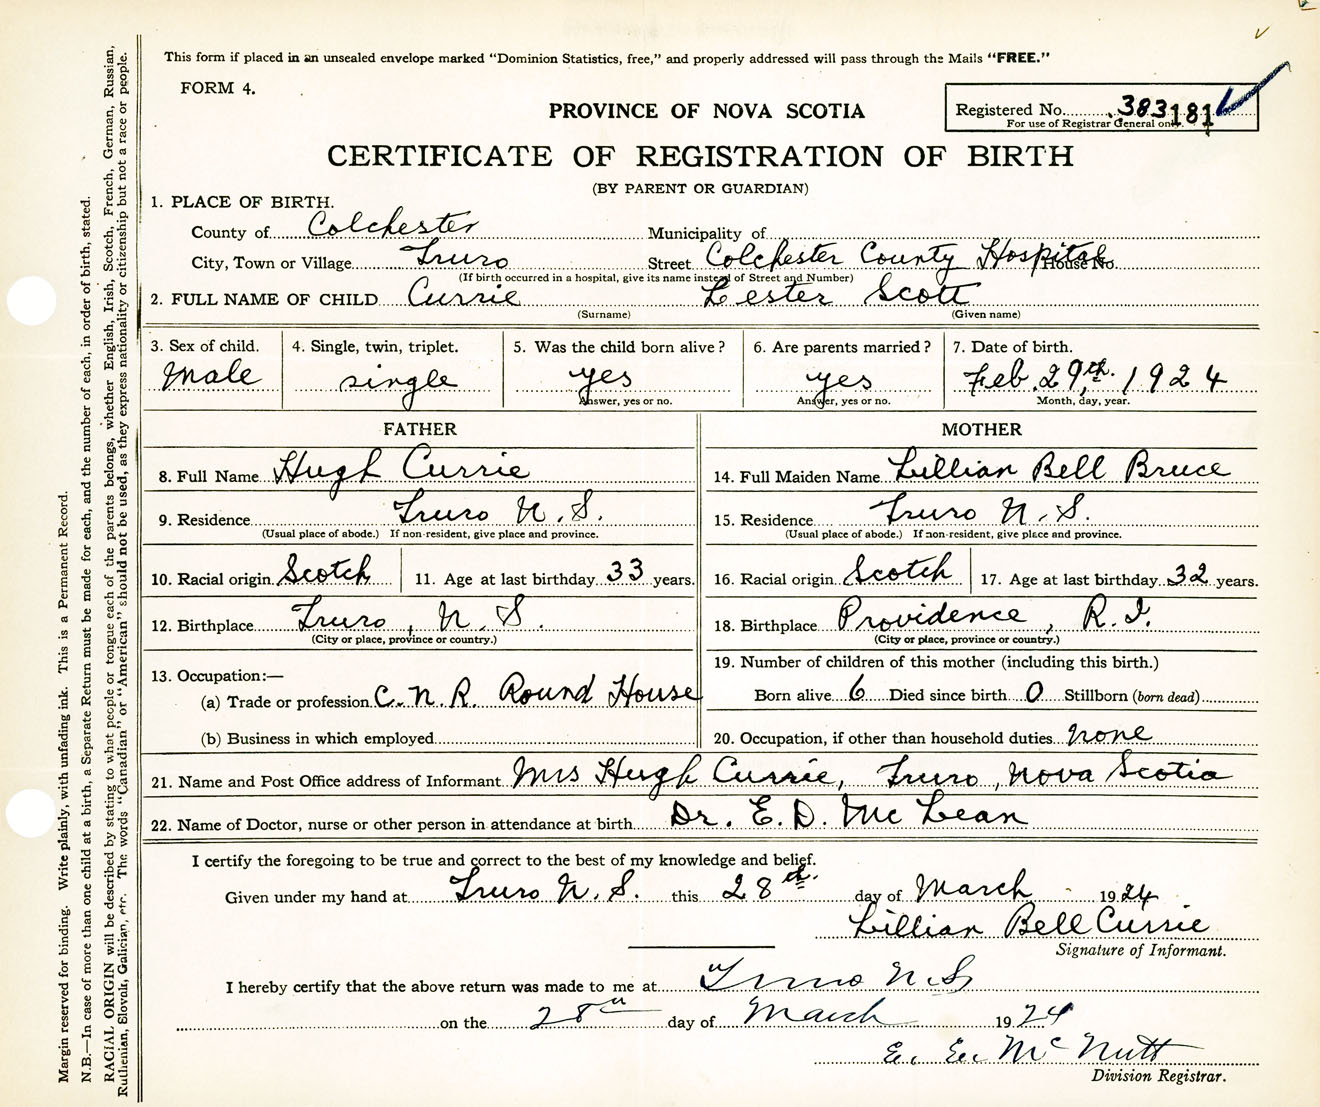 This form if placed in an unsealed envelope marked "Dominion Statistics, free," and properly addressed will pass through the Mails "FREE."
FORM 4.
PROVINCE OF NOVA SCOTIA
Registered No. 383181
For use of Registrar General only.
CERTIFICATE OF REGISTRATION OF BIRTH
(BY PARENT OR GUARDIAN)
1. PLACE OF BIRTH.
County of Colchester Municipality of
City, Town or Village Truro Street Colchester County Hospital House No.
(If birth occurred in a hospital, give its name instead of Street and Number)
2. FULL NAME OF CHILD Currie Lester Scott
(Surname) (Given name)
3. Sex of child. 4. Single, twin, triplet. 5. Was the child born alive? 6. Are parents married? 7. Date of birth.
Male single yes yes Feb. 29th. 1924
Answer, yes or no. Answer, yes or no. Month, day, year.
FATHER MOTHER
8. Full Name Hugh Currie 14. Full Maiden Name Lillian Bell Bruce
9. Residence Truro N.S. 15. Residence Truro N.S.
(Usual place of abode.) If non-resident, give place and province. (Usual place of abode.) If non-resident, give place and province.
10. Racial origin Scotch 11. Age at last birthday 33 years. 16. Racial origin Scotch 17. Age at last birthday 32 years.
12. Birthplace Truro, N.S. 18. Birthplace Providence, R.I.
(City or place, province or country.) (City or place, province or country.)
13. Occupation:— 19. Number of children of this mother (including this birth.)
(a) Trade or profession C.N.R. Round House Born alive 6 Died since birth 0 Stillborn (born dead)
(b) Business in which employed 20. Occupation, if other than household duties none
21. Name and Post Office address of Informant Mrs Hugh Currie, Truro, Nova Scotia
22. Name of Doctor, nurse or other person in attendance at birth Dr. E. D. McLean
I certify the foregoing to be true and correct to the best of my knowledge and belief.
Given under my hand at Truro N.S. this 28th. day of March 1924
Lillian Bell Currie
Signature of Informant.
I hereby certify that the above return was made to me at Truro N.S
on the 28th day of March 1924
E. E. McNutt
Division Registrar.
Margin reserved for binding. Write plainly, with unfading ink. This is a Permanent Record.
N.B.—In case of more than one child at a birth, a Separate Return must be made for each, and the number of each, in order of birth, stated.
RACIAL ORIGIN will be described by stating to what people or tongue each of the parents belongs, whether English, Irish, Scotch, French, German, Russian,
Ruthenian, Slovak, Galician, etc. The words "Canadian" or "American" should not be used, as they express nationality or citizenship but not a race or people.